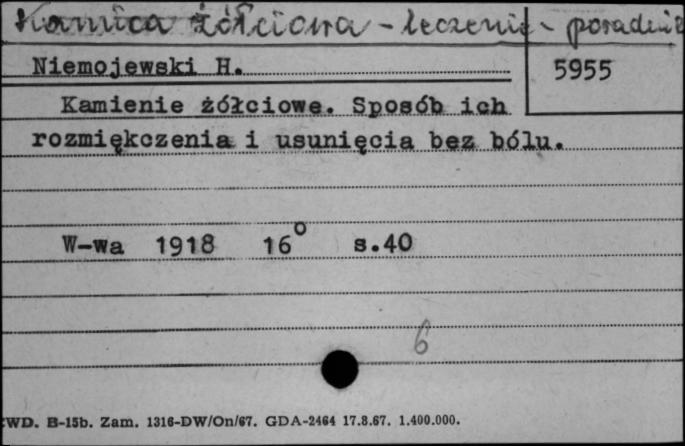 Kamica żółciowa - leczenie - poradnik
Niemojewski H.
5955
Kamienie żółciowe. Sposób ich
rozmiękczenia i usunięcia bez bólu.
W-wa 1918 16° s.40
6
WD. B-15b. Zam. 1316-DW/On/67. GDA-2464 17.8.67. 1.400.000.